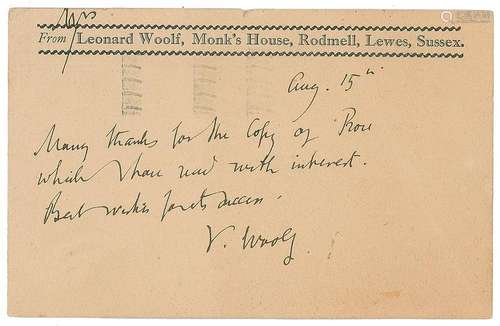 Mrs
From Leonard Woolf, Monk's House, Rodmell, Lewes, Sussex.
Aug. 15th
Many thanks for the copy of Prose
which I have read with interest.
Best wishes for its success.
V. Woolf